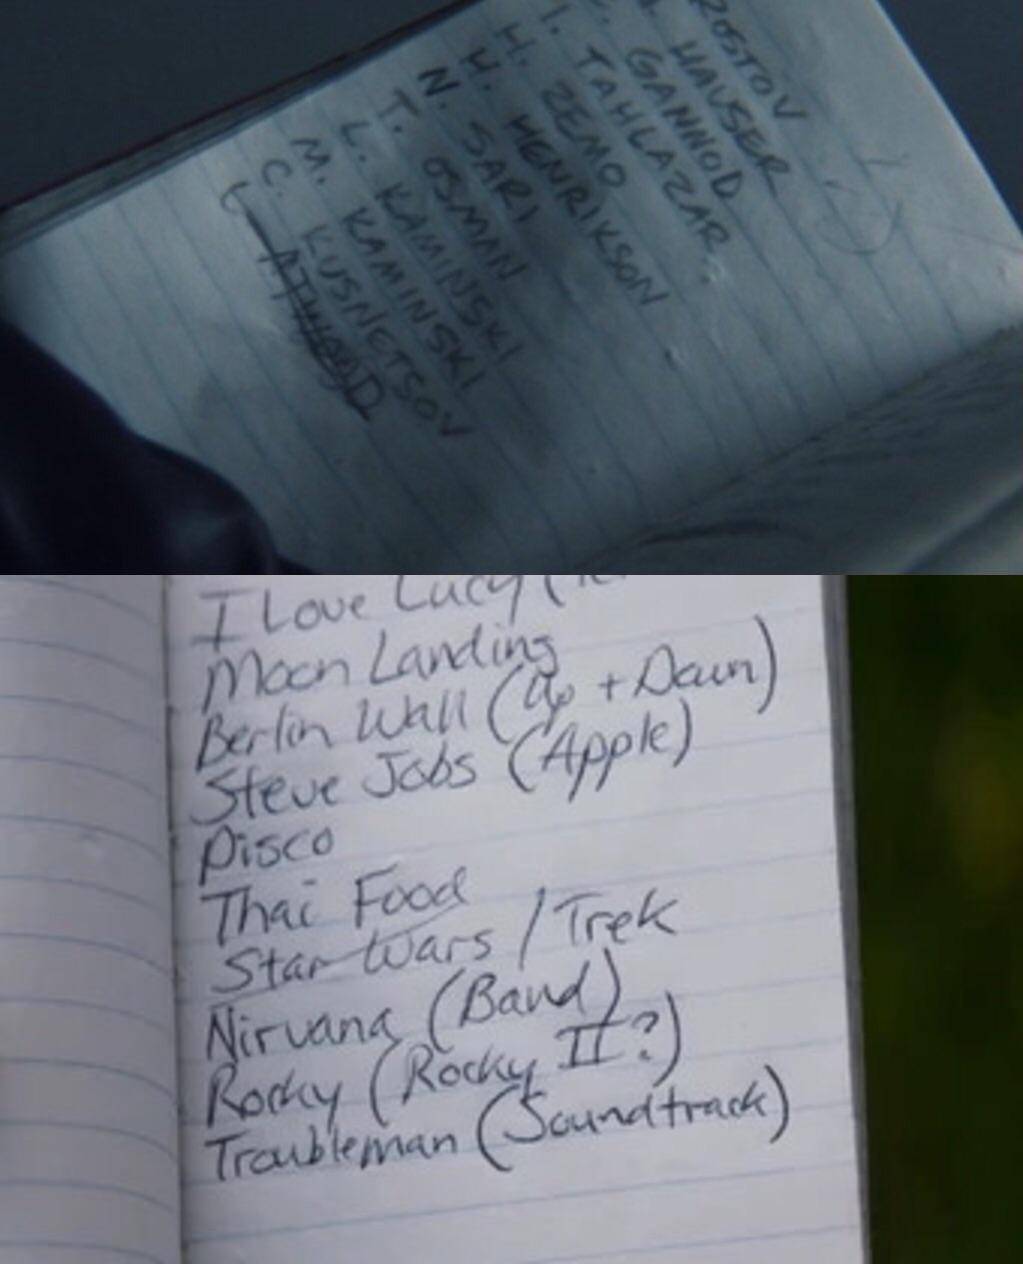 ROSTOV
HAUSER
GANNOD
I. TAHLAZAR
H. ZEMO
HENRIKSON
N. SARI
T. OSMAN
L. KAMINSKI
M. KAMINSKI
C. KUSNETSOV
ATWOOD
I Love Lucy
Moon Landing
Berlin Wall (Up + Down)
Steve Jobs (Apple)
Disco
Thai Food
Star Wars / Trek
Nirvana (Band)
Rocky (Rocky II?)
Troubleman (Soundtrack)